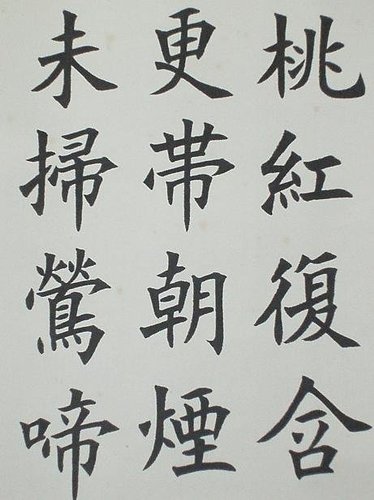 桃紅復含
更帯朝煙
未掃鶯啼